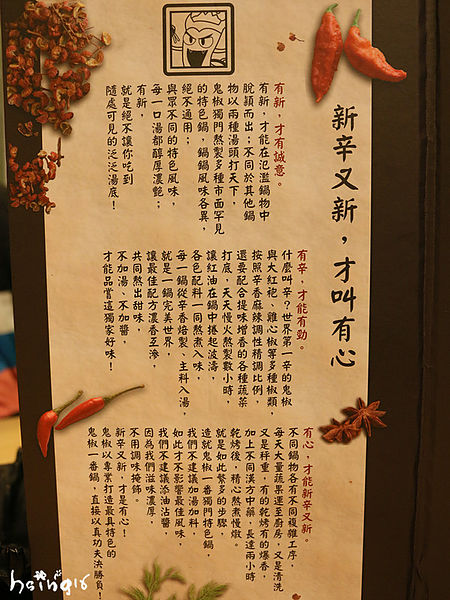 新辛又新，才叫有心
有新，才有誠意。
有新，才能在氾濫鍋物中
脫穎而出；不同於其他鍋
物以兩種湯頭打天下，
鬼椒獨門熬製多種市面罕見
的特色鍋，鍋鍋風味各異，
絕不通用；
與眾不同的特色風味，
每一口湯都醇厚濃馥；
有新，
就是絕不讓你吃到
隨處可見的泛泛湯底！
有辛，才能有勁。
什麼叫辛？世界第一辛的鬼椒
與大紅袍、雞心椒等多種椒類，
按照辛香麻辣調性精調比例，
還要配合提味增香的各種蔬菜
打底，天天慢火熬製數小時，
讓紅油在鍋中捲起波濤，
各色配料一同熬煮入味，
每一鍋從辛香焙製、主料入湯，
就是一鍋完美世界，
讓最佳配方濃香互滲，
共同熬出甜味，
不加湯、不加醬，
才能品嘗這獨家好味！
有心，才能新辛又新。
不同鍋物各有不同複雜工序，
每天大量蔬果運至廚房，又是清洗
又是秤重，有的乾烤有的爆香，
加上不同漢方中藥，長達兩小時
乾烤後，精心熬煮慢燉。
就是如此繁多的步驟，
造就鬼椒一番獨門特色鍋，
我們不建議加湯加料，
如此才不影響最佳風味，
我們不建議添油沾醬，
因為我們滋味濃厚，
不用調味掩飾。
新辛又新，才是有心！
鬼椒以專業打造最具特色的
鬼椒一番鍋，直接以真功夫決勝負！
hsing16